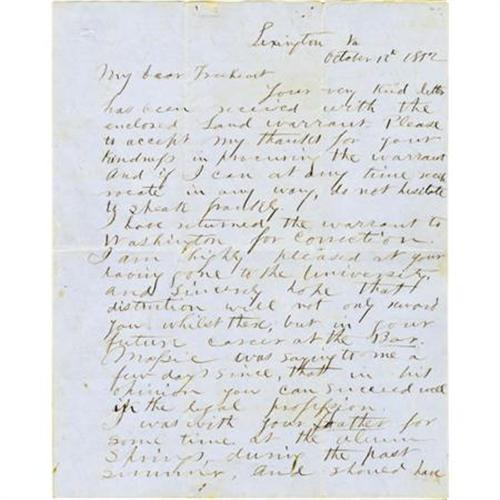 Lexington Va
October 12th 1852
My Dear
Your very kind letter
has been received with the
enclosed Land warrant. Please
to accept my thanks for your
kindness in procuring the warrant
And if I can at any time
rocate in any way, do not hesitate
to speak frankly.
I have returned the warrant to
Washington for correction.
I am highly pleased at your
having gone to the University,
and sincerely hope that
distinction will not only reward
you whilst there, but in your
future career at the Bar.
Massie was saying to me a
few days since, that in his
opinion you can succeed well
in the legal profession.
I was with your father for
some time at the alum
Springs, during the past
summer, and should have